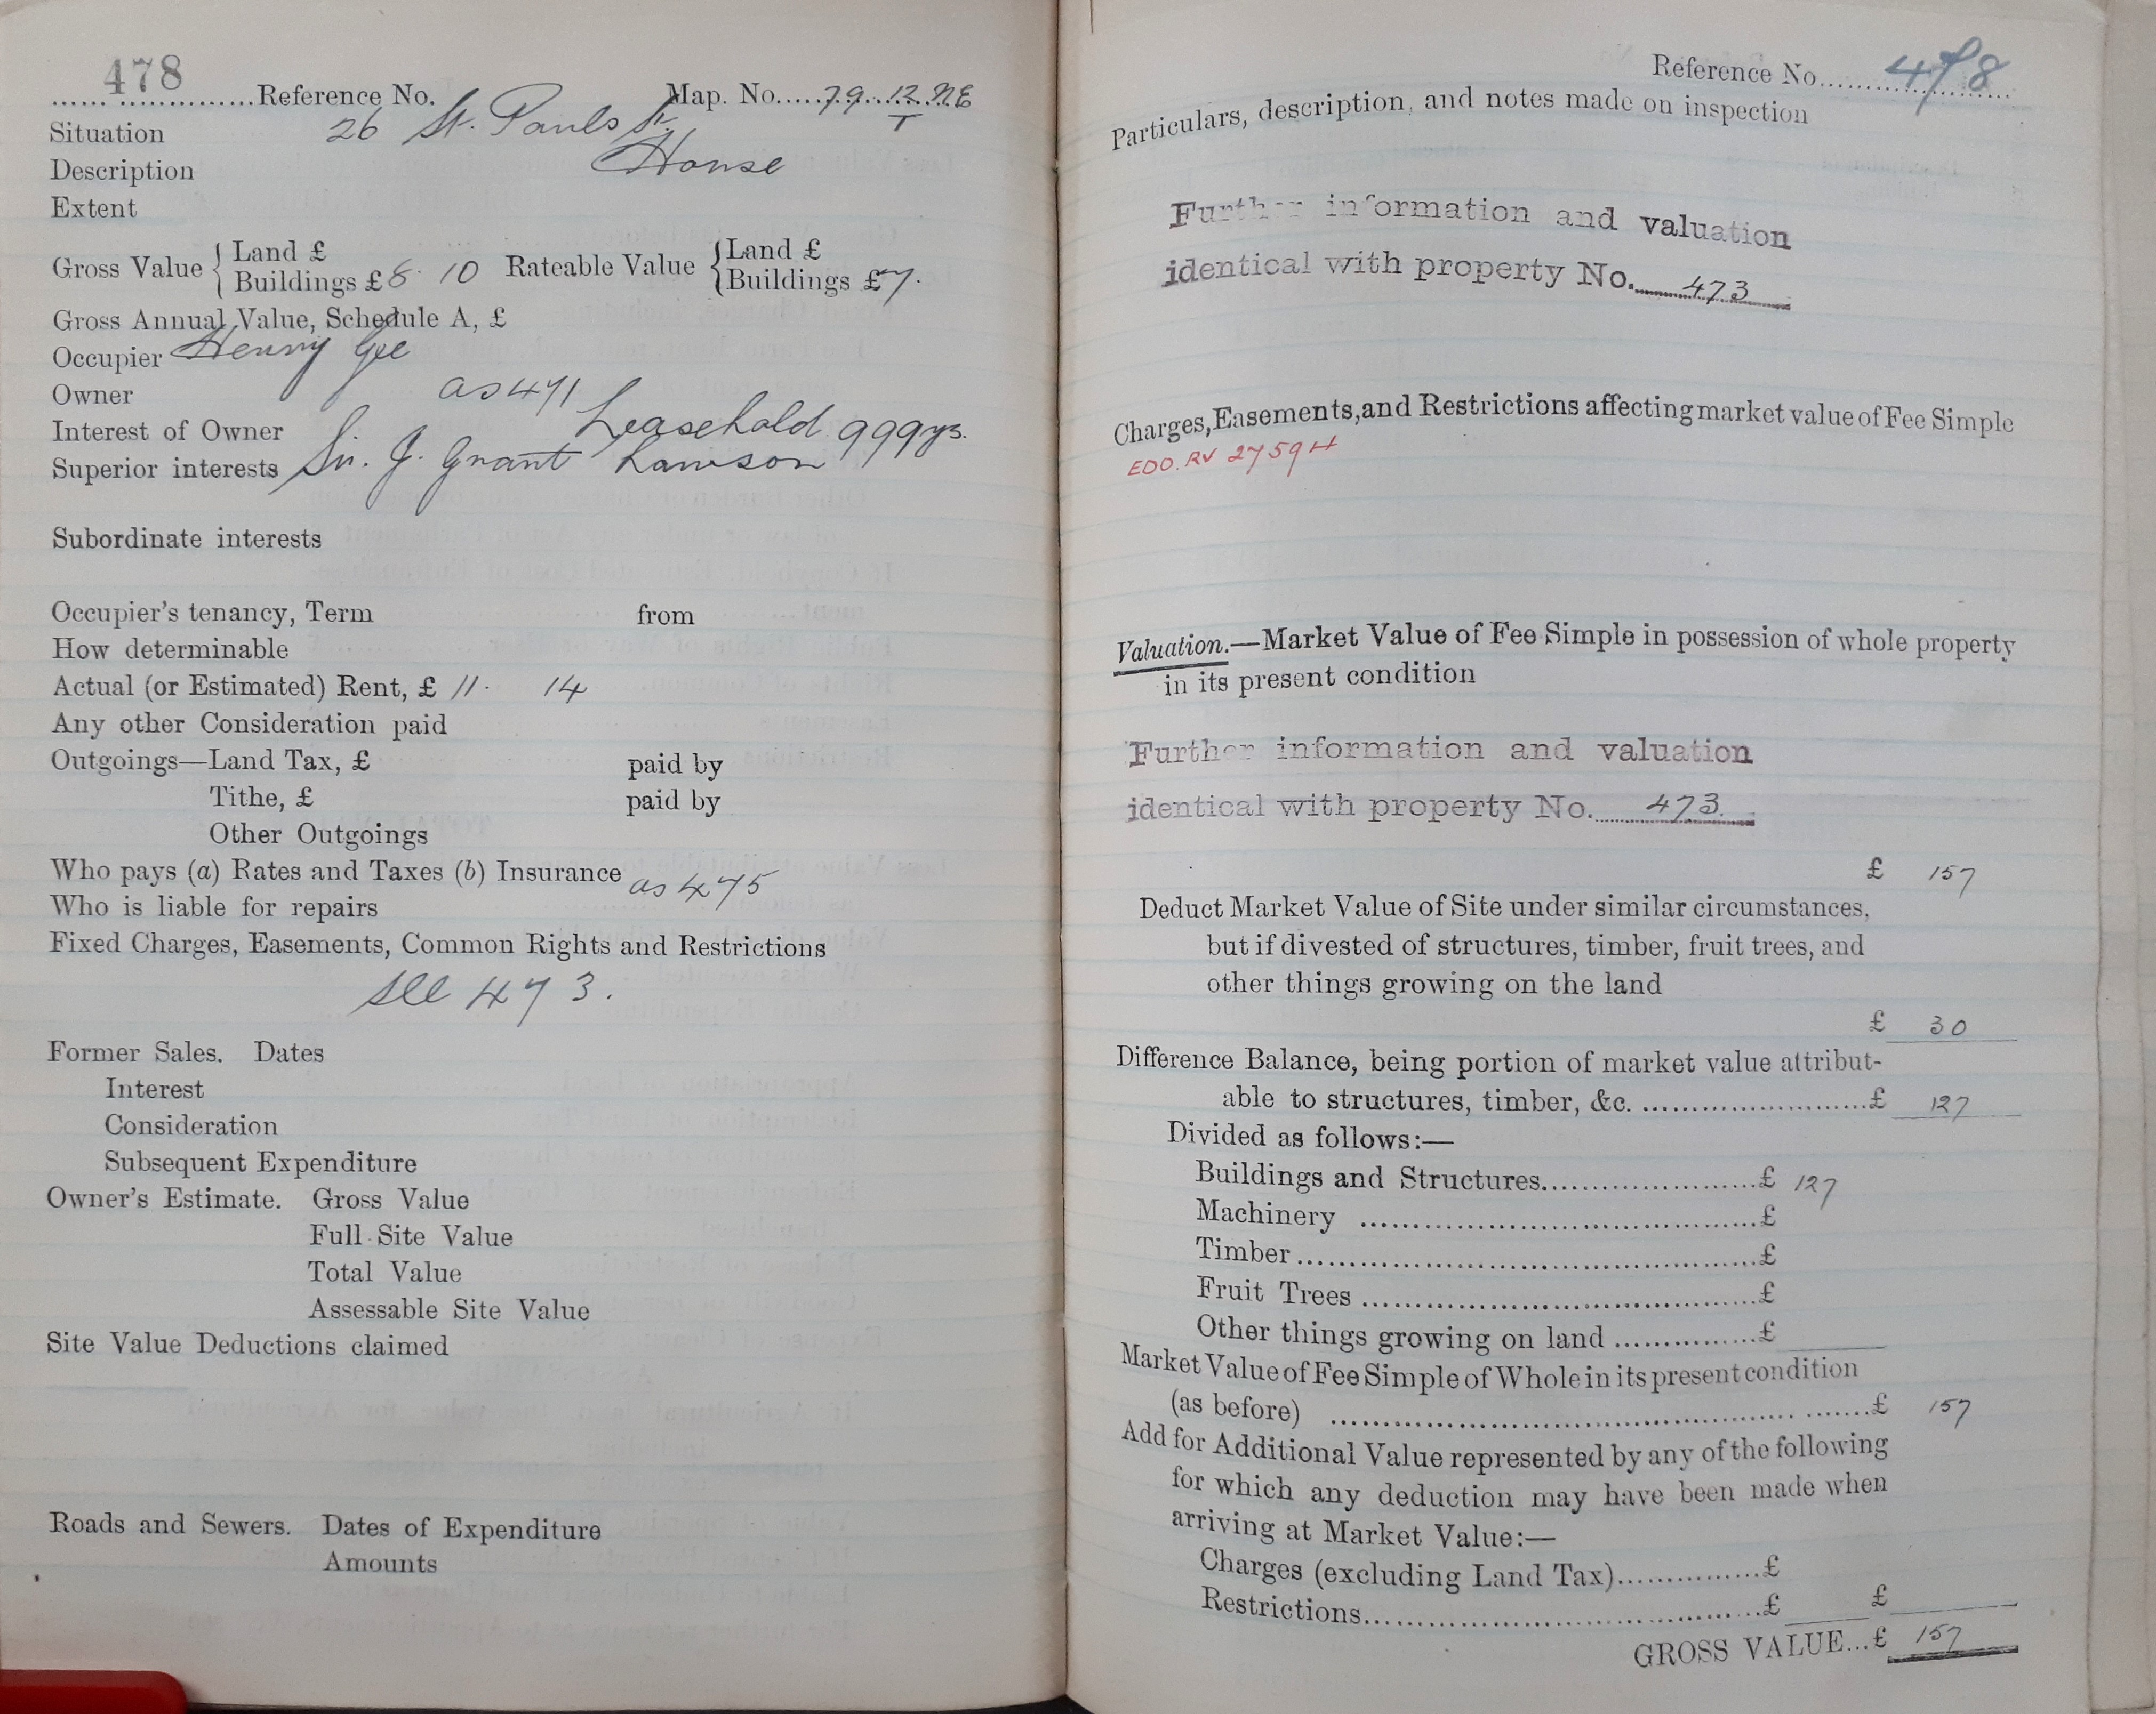 478
Reference No. Map. No. 79.12.NE
T
Situation 26 St. Pauls St.
Description House
Extent
Gross Value { Land £
Buildings £ 8. 10
Rateable Value { Land £
Buildings £ 7.
Gross Annual Value, Schedule A, £
Occupier Henry Gee
Owner as 471
Interest of Owner Leasehold 999 ys.
Superior interests Sir. J. Grant Lawson
Subordinate interests
Occupier's tenancy, Term from
How determinable
Actual (or Estimated) Rent, £ 11. 14
Any other Consideration paid
Outgoings—Land Tax, £ paid by
Tithe, £ paid by
Other Outgoings
Who pays (a) Rates and Taxes (b) Insurance as 475
Who is liable for repairs
Fixed Charges, Easements, Common Rights and Restrictions
see 473.
Former Sales. Dates
Interest
Consideration
Subsequent Expenditure
Owner's Estimate. Gross Value
Full Site Value
Total Value
Assessable Site Value
Site Value Deductions claimed
Roads and Sewers. Dates of Expenditure
Amounts
Reference No. 478
Particulars, description, and notes made on inspection
Further information and valuation
identical with property No. 473
Charges, Easements, and Restrictions affecting market value of Fee Simple
EDO. RV 2759H
Valuation.—Market Value of Fee Simple in possession of whole property
in its present condition
Further information and valuation
identical with property No. 473.
£ 157
Deduct Market Value of Site under similar circumstances,
but if divested of structures, timber, fruit trees, and
other things growing on the land
£ 30
Difference Balance, being portion of market value attribut-
able to structures, timber, &c. £ 127
Divided as follows:—
Buildings and Structures £ 127
Machinery £
Timber £
Fruit Trees £
Other things growing on land £
Market Value of Fee Simple of Whole in its present condition
(as before) £ 157
Add for Additional Value represented by any of the following
for which any deduction may have been made when
arriving at Market Value:—
Charges (excluding Land Tax) £
Restrictions £ £
GROSS VALUE...£ 157